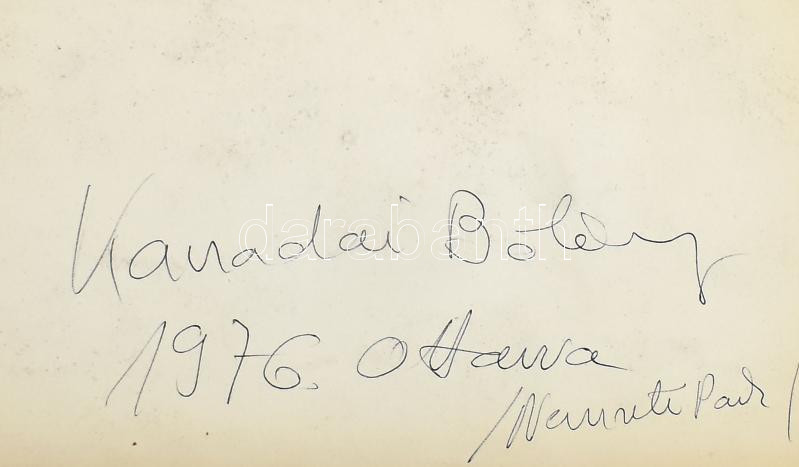 Kanadai Bölény
1976. Ottawa
/Nemzeti Park/
darabanth